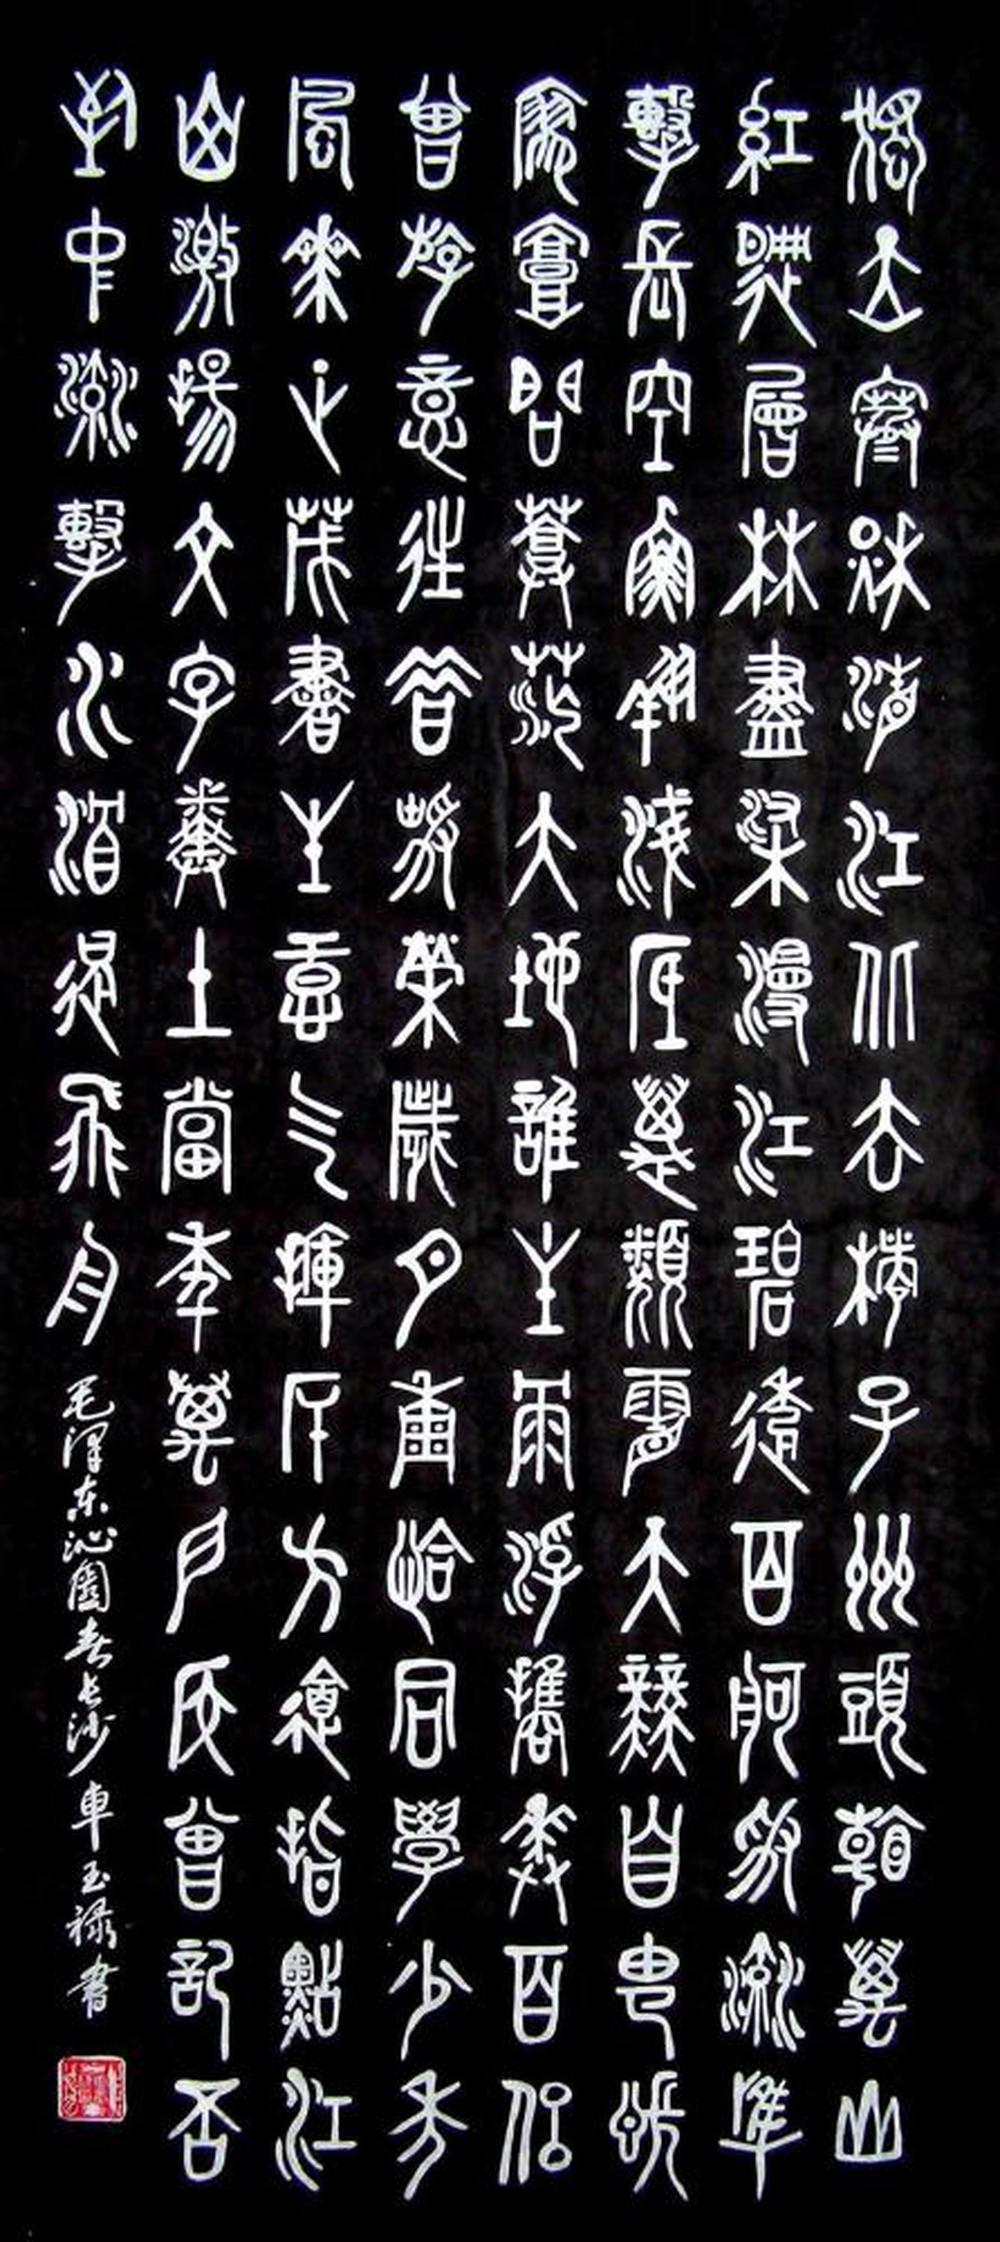 獨立寒秋湘江北去橘子洲頭看萬山
紅遍層林盡染漫江碧透百舸爭流鷹
擊長空魚翔淺底萬類霜天競自由悵
寥廓問蒼茫大地誰主沉浮攜來百侶
曾游憶往昔崢嶸歲月稠恰同學少年
風華正茂書生意氣揮斥方遒指點江
山激揚文字糞土當年萬戶侯曾記否
到中流擊水浪遏飛舟
毛澤东沁園春长沙車玉禄書